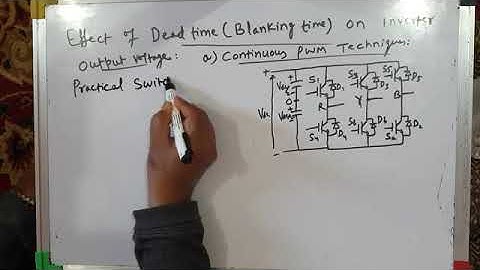 Effect of Dead time (Blanking time) on inverter
Output voltage: a) Continuous PWM Techniques:
Practical Switc
S1 D1 S3 S5 D5
R Y B
O
S4 D4 S6 D6 S2 D2